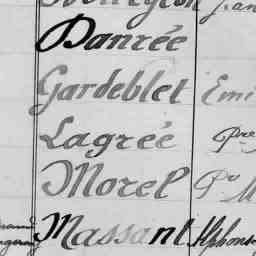 Danrée
Gardeblet Emi
Lagrée Pre
Morel Pre M
Massant Alphonse